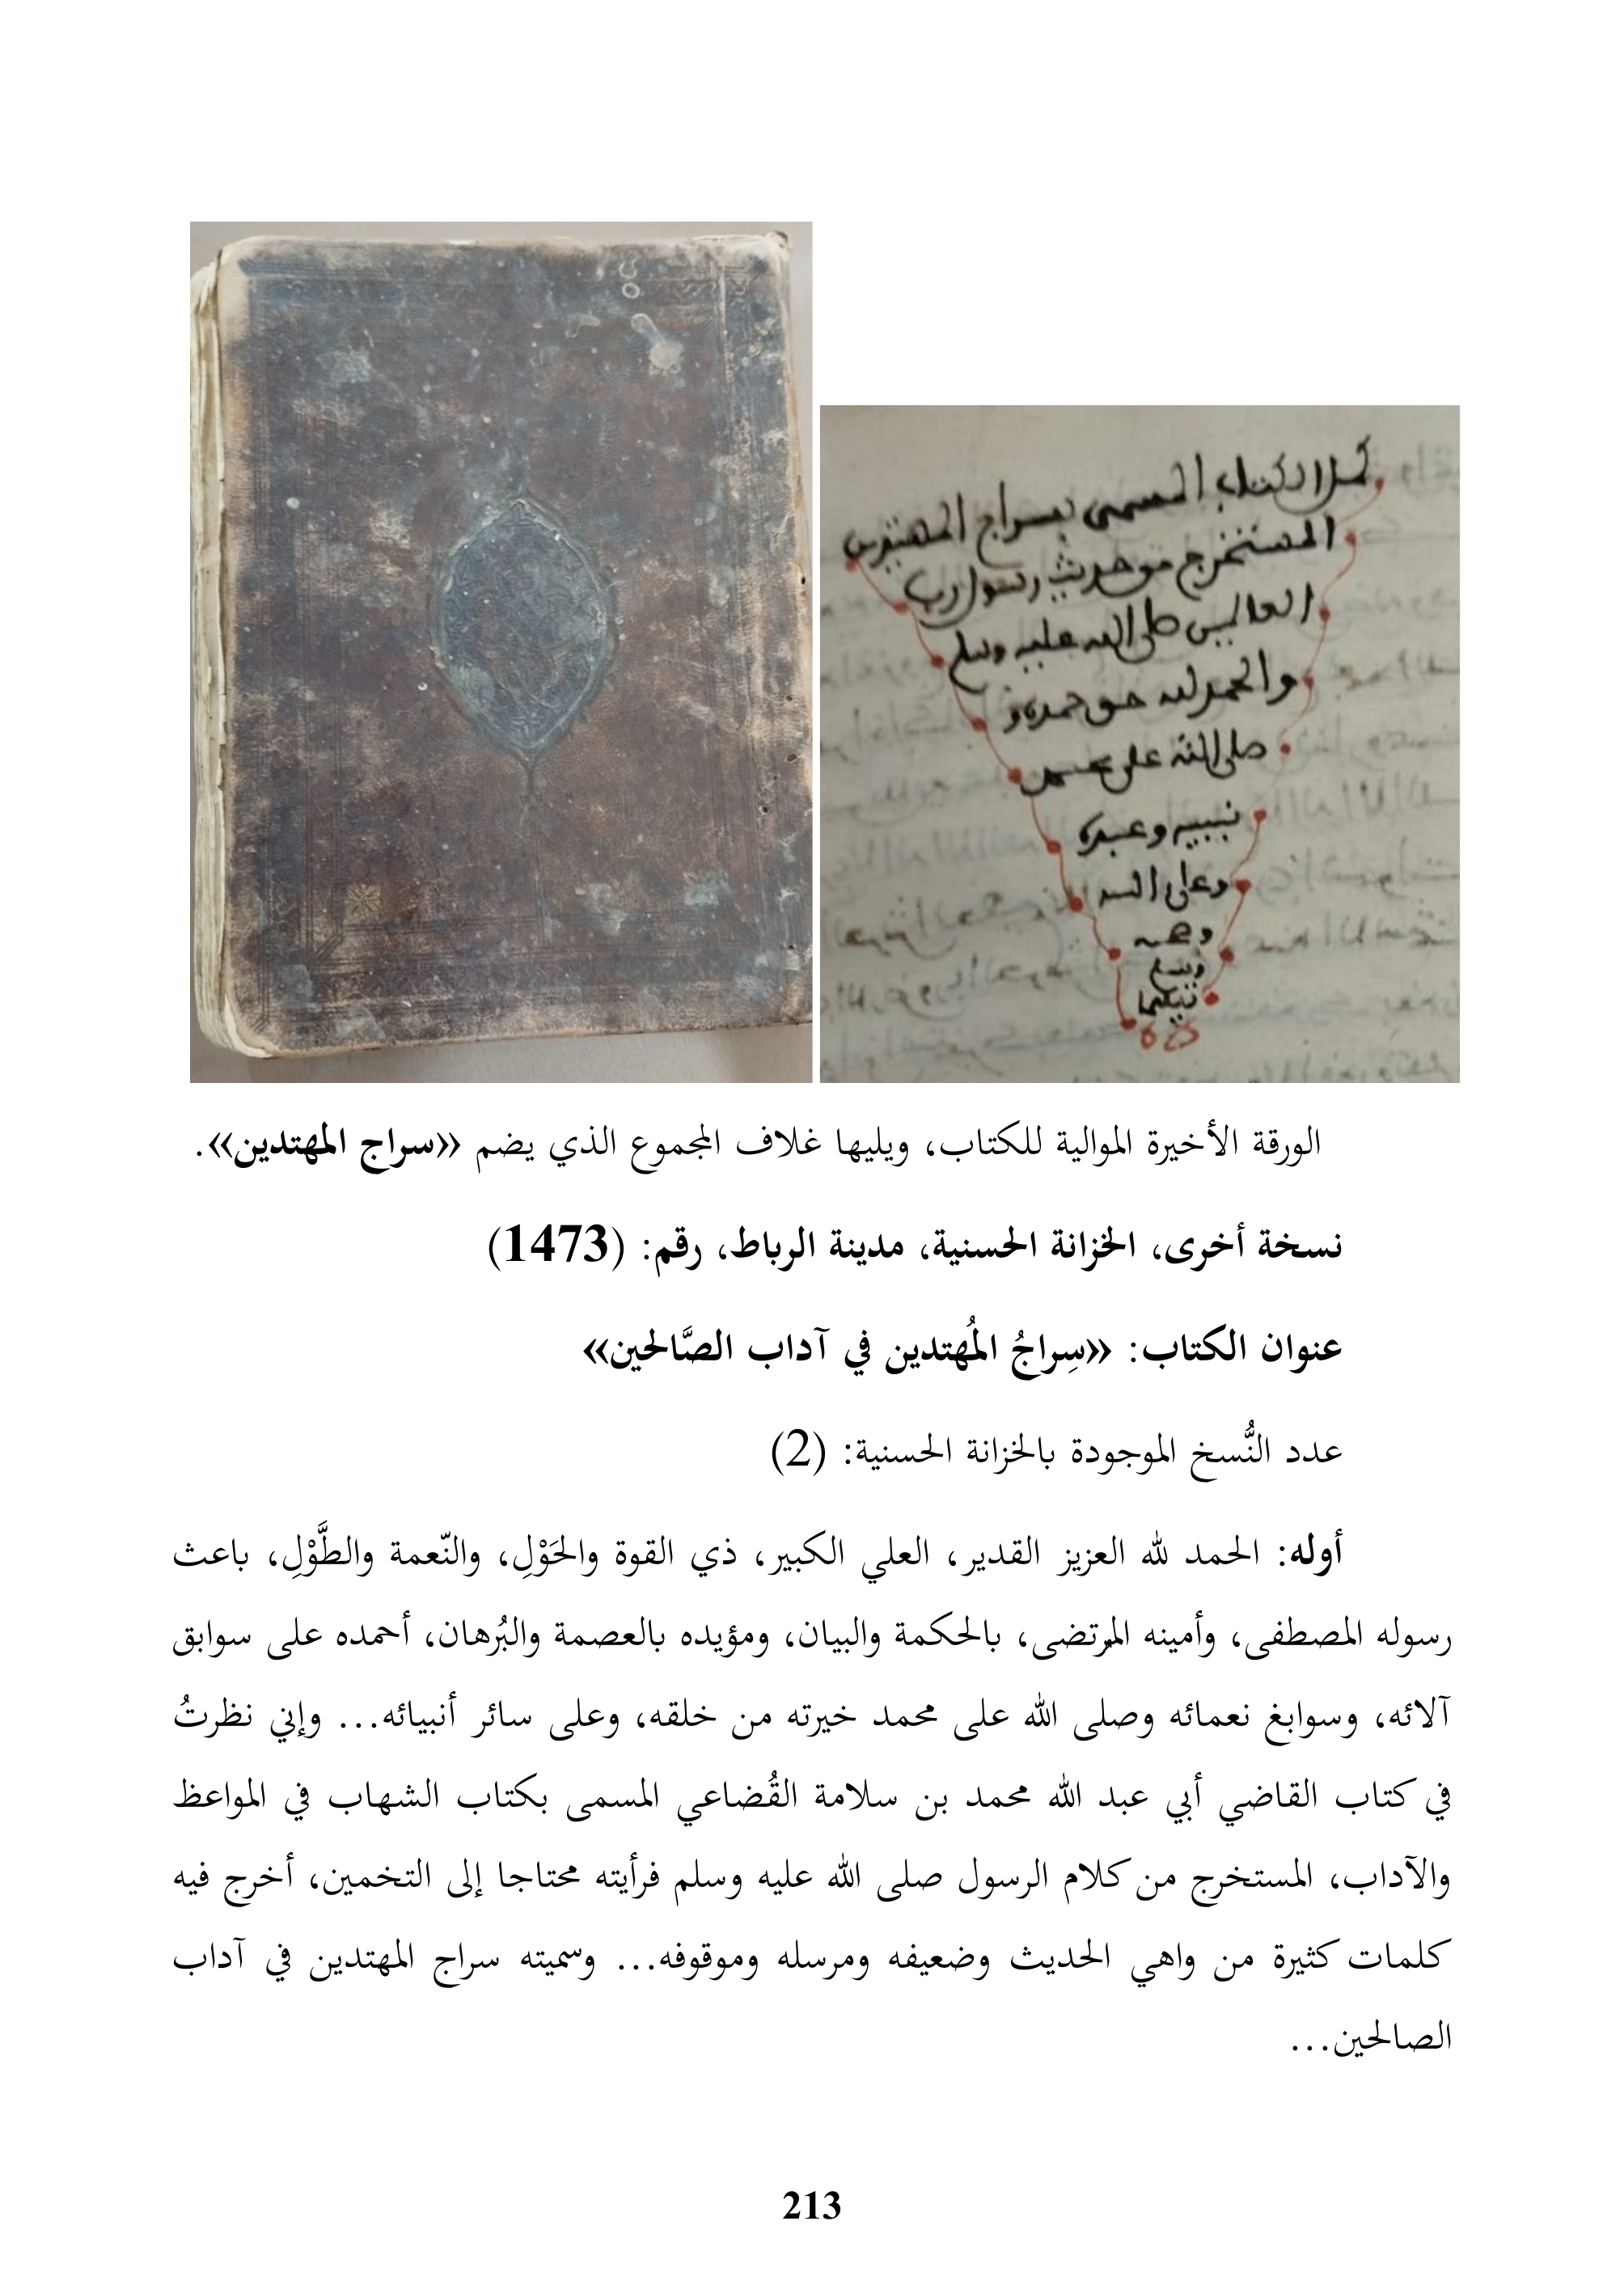 كمل الكتاب المسمى بسراج المهتدين
المستخرج من حديث رسول رب
العالمين صلى الله عليه وسلم
والحمد لله حق حمده و
صلى الله على محمد
نبيه وعبده
وعلى اله
وصحبه
وسلم
تسليما
الورقة الأخيرة الموالية للكتاب، ويليها غلاف المجموع الذي يضم «سراج المهتدين».
نسخة أخرى، الخزانة الحسنية، مدينة الرباط، رقم: (1473)
عنوان الكتاب: «سِراجُ المُهتدين في آداب الصَّالحين»
عدد النُّسخ الموجودة بالخزانة الحسنية: (2)
أوله: الحمد لله العزيز القدير، العلي الكبير، ذي القوة والحَوْلِ، والنّعمة والطَّوْلِ، باعث
رسوله المصطفى، وأمينه المرتضى، بالحكمة والبيان، ومؤيده بالعصمة والبُرهان، أحمده على سوابق
آلائه، وسوابغ نعمائه وصلى الله على محمد خيرته من خلقه، وعلى سائر أنبيائه... وإني نظرتُ
في كتاب القاضي أبي عبد الله محمد بن سلامة القُضاعي المسمى بكتاب الشهاب في المواعظ
والآداب، المستخرج من كلام الرسول صلى الله عليه وسلم فرأيته محتاجا إلى التخمين، أخرج فيه
كلمات كثيرة من واهي الحديث وضعيفه ومرسله وموقوفه... وسميته سراج المهتدين في آداب
الصالحين...
213